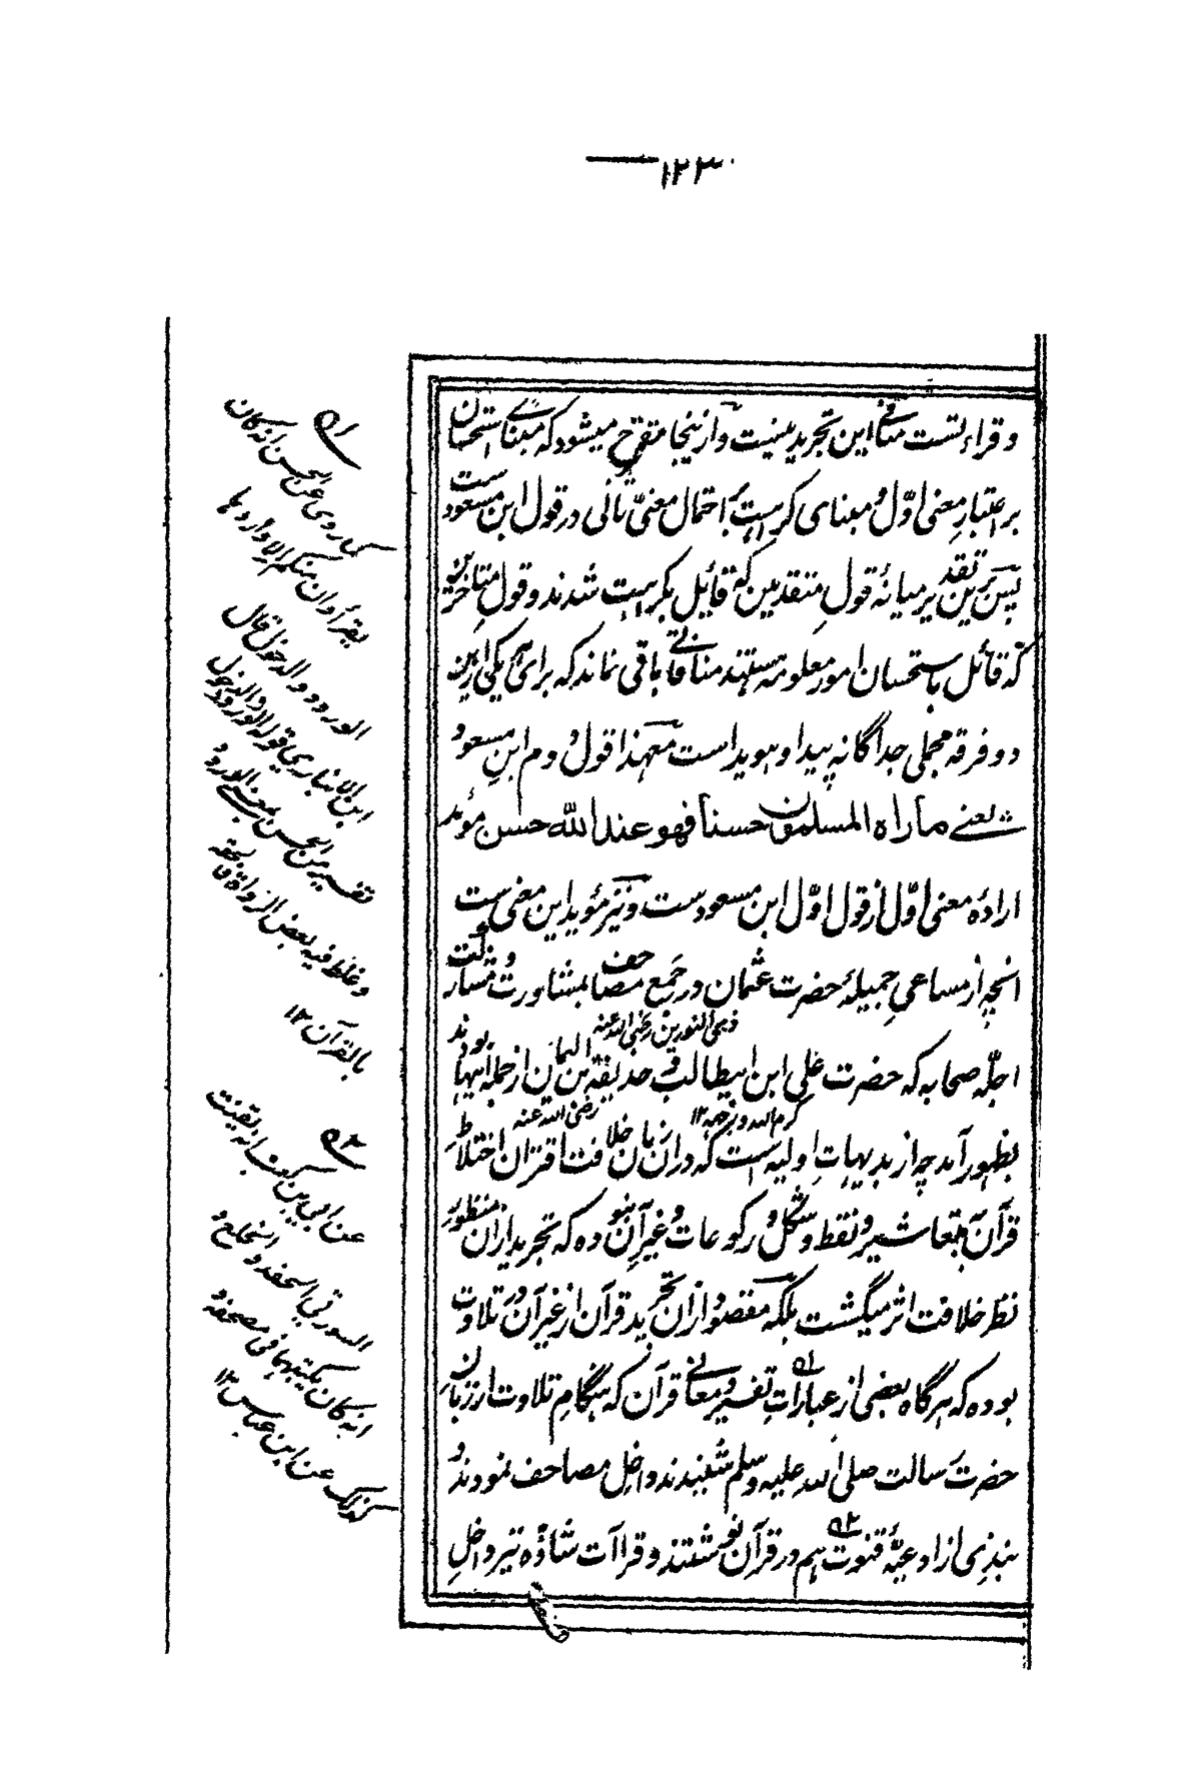 ۱۲۳
و قراءتست منافی این تجرید نیست و ازینجا متفرح میشود که مبنای استحسان
بر اعتبار معنی اوّل و مبنای کراهیت بر احتمال معنی ثانی در قول ابن مسعود ست
پس برین تقدیر میانهٔ قول متقدمین که قایل بکراهیت شدند و قول متاخرین
که قائل باستحسان امور معلومه هستند منافاتی باقی نماند که برای هر یکی ازین
دو فرقه محملی جداگانه پیدا و هویداست معهذا قول دوم ابن مسعود
یعنے ماراه المسلمون حسناً فهو عند الله حسن موئد
ارادهٔ معنی اوّل از قول اوّل ابن مسعود ست و نیز مؤید این معنی ست
انچه از مساعی جمیلهٔ حضرت عثمان در جمع مصاحف بمشاورت و مشارکت
ذی النورین رضی الله عنه
اجلّه صحابه که حضرت علی ابن ابیطالب و حذیفة بن الیمان از جمله اینها بودند
کرم الله وجهه ۱۲ رضی الله عنه
بظهور آمد چه از بدیهیات اولیه است که دران زمان خلافت اقتران اختلاط
قرآن بتعاشیر و نقط و شکل و رکوعات و غیر آن نبوده که تجرید ازان منظور
نظر خلافت اثر میگشت بلکه مقصود ازان تجرید قرآن از غیر آن در تلاوت
بوده که هرگاه بعضی از عبارات تفسیر و معانی قرآن که هنگام تلاوت از زبان
حضرت رسالت صلی الله علیه وسلم شنیدند داخل مصاحف نمودند و
نبذی از ادعیّهٔ قنوت هم در قرآن نوشتند و قراآت شاذّه نیز داخل
۵۱
کما روی عن الحسن انه کان
یقرأ و ان منکم الا واردها
الورود الدخول قال
ابن الانباری قوله الورود الدخول
تفسیر من الحسن لمعنے الورود
و غلط فیه بعض الرواة فالحقه
بالقرآن ۱۲
۵۲
عن ابی بن کعب انه یقنت
السورتی الحفد و الخلع و
انه کان یکتبهما فی مصحفه و
کذلک عن ابن عباس ۱۲